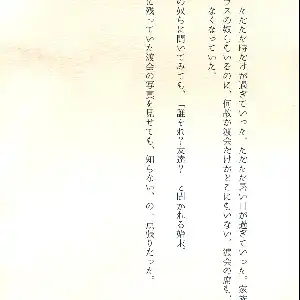 々ただただ時だけが過ぎていった。ただただ長い日が過ぎていった。家族
ラスの奴らもいるのに、何故か渡会だけがどこにもいない。渡会の席も
なくなっていた。
の奴らに聞いてみても、「誰それ？友達？」と聞かれる始末。
に残っていた渡会の写真を見せても、知らない、の一点張りだった。